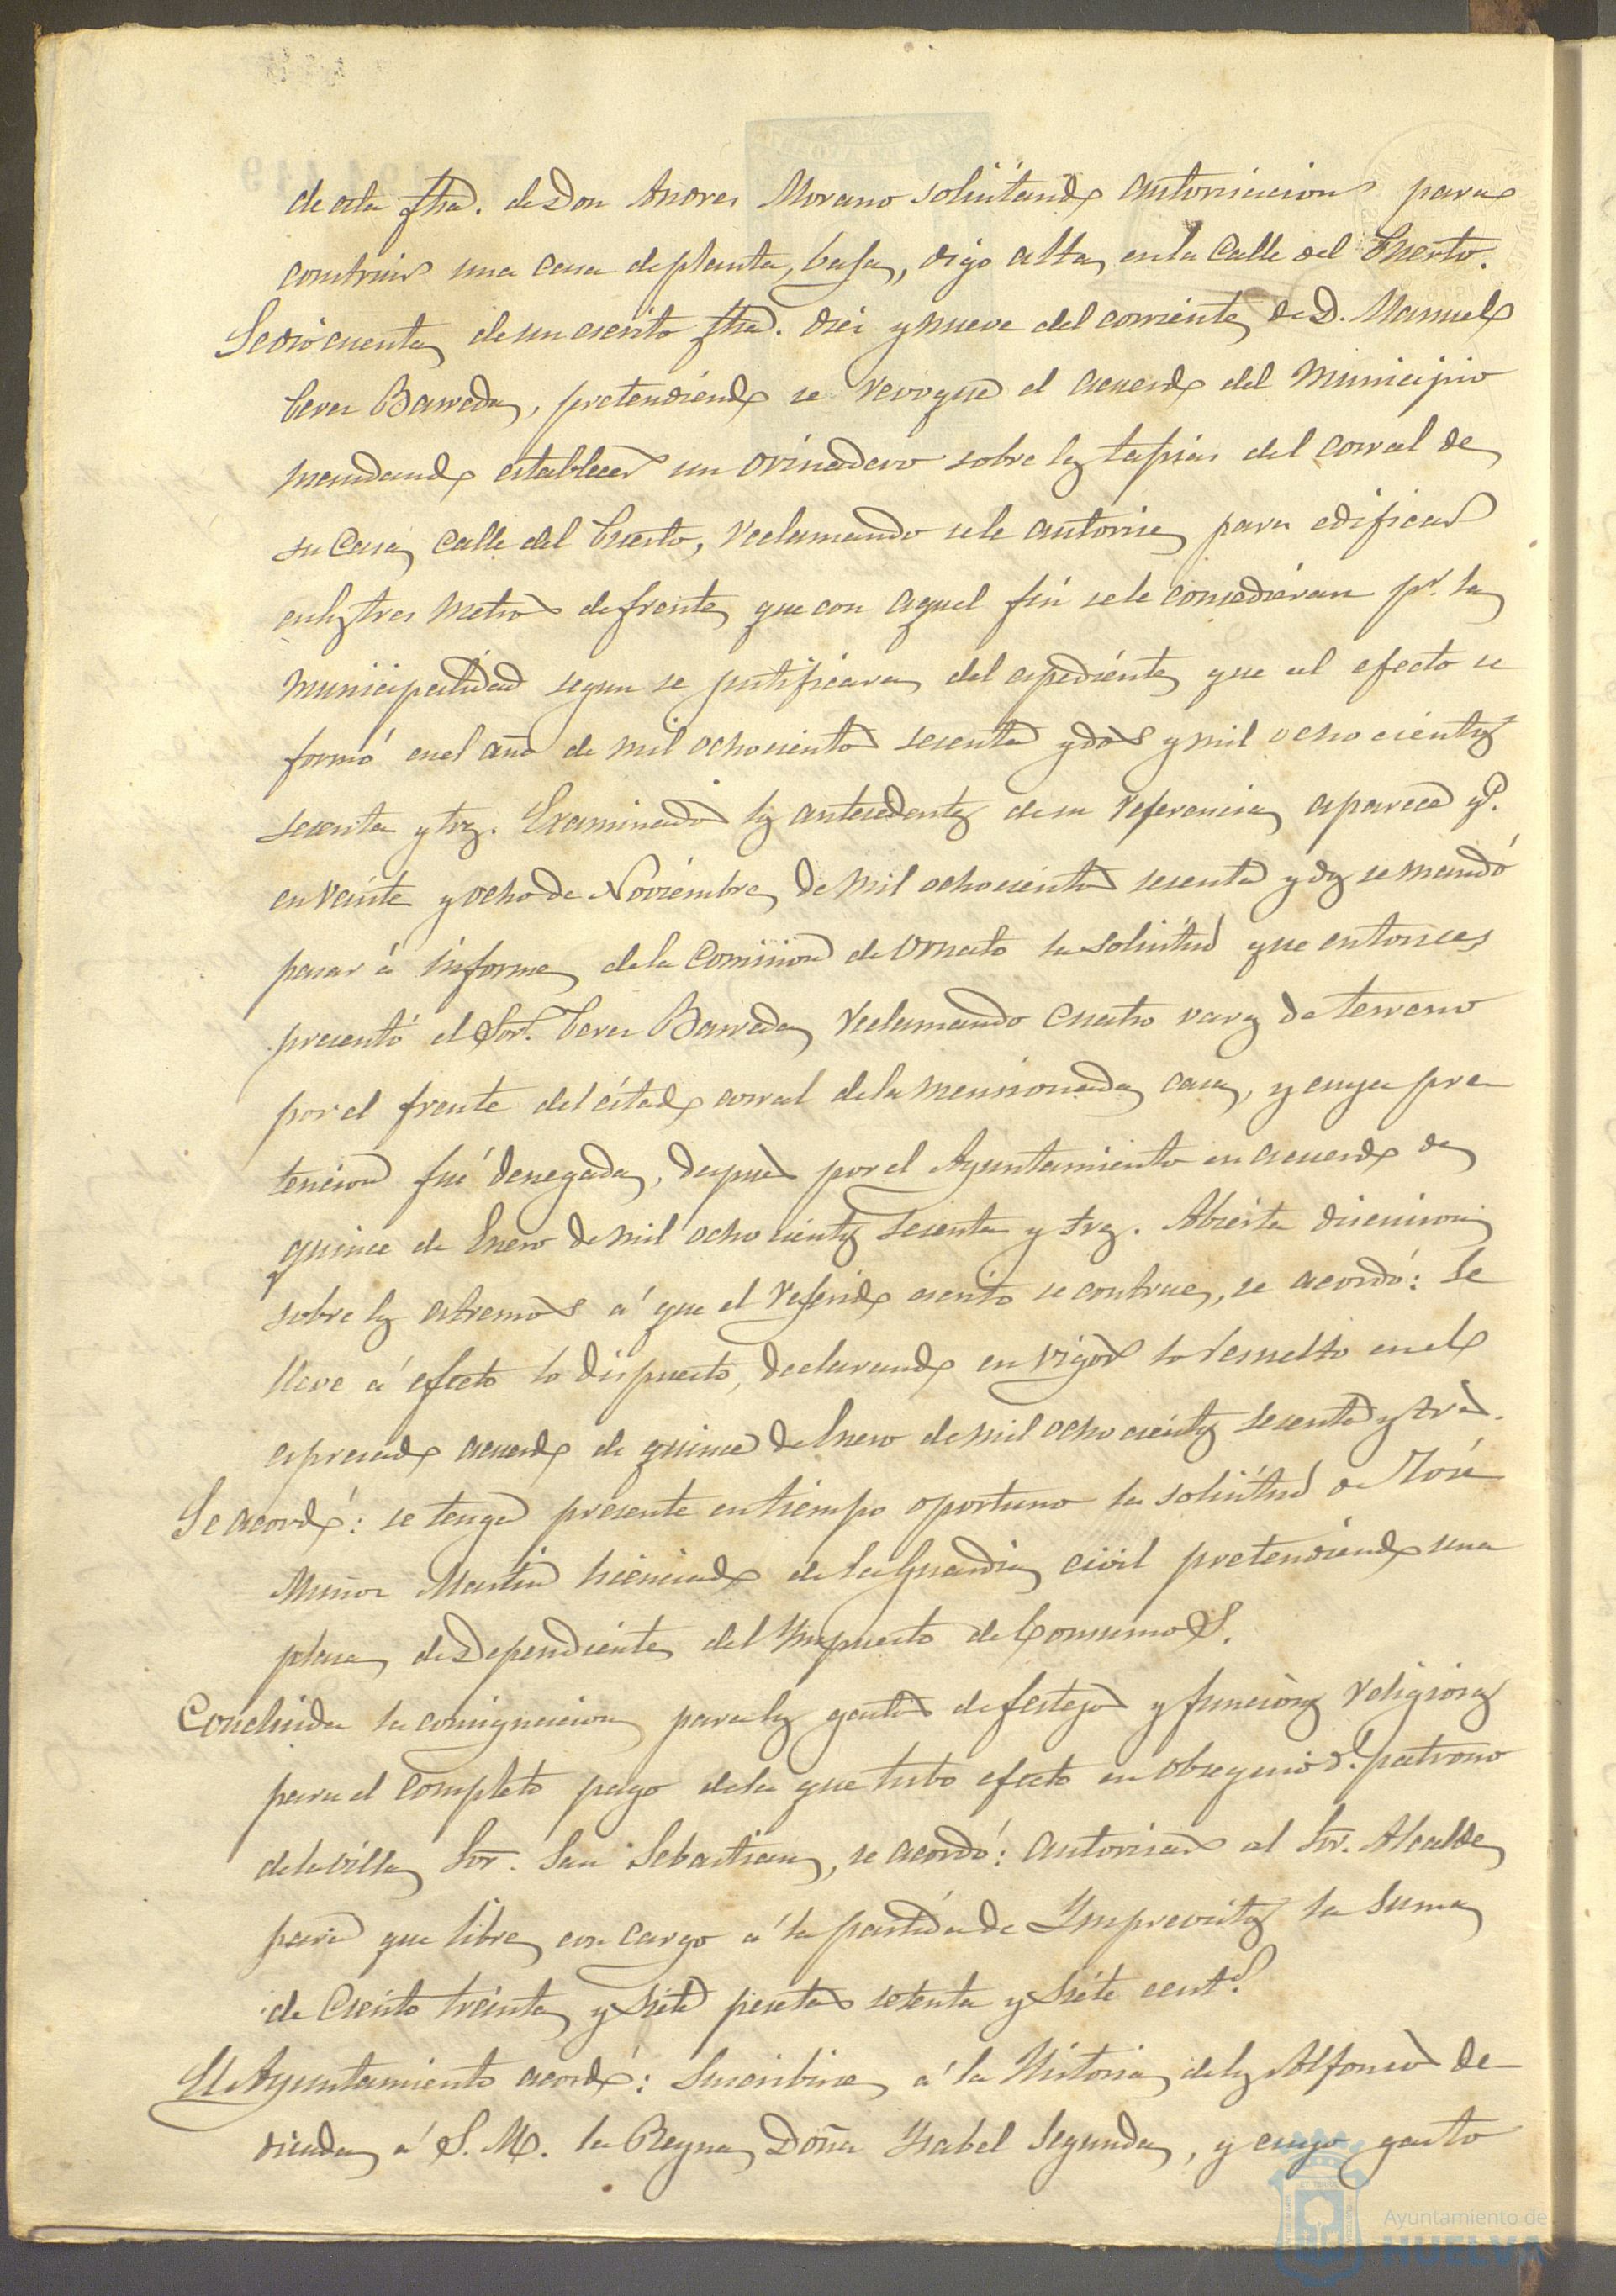 de esta fha. de Don Andres Morano solicitando autorizacion para
construir una casa de planta, baja, digo alta, en la Calle del Puerto.
Se dió cuenta de un escrito fha. diez y nueve del corriente de D. Manuel
Perez Barreda, pretendiendo se revoque el acuerdo del Municipio
mandando establecer un orinadero sobre las tapias del corral de
su Casa calle del Puerto, reclamando se le autorice para edificar
en los tres metros de frente que con aquel fin se le concedieran pr. la
municipalidad segun se justificara del espediente que al efecto se
formó en el año de mil ochocientos sesenta y dos y mil ochocientos
sesenta y tres. Examinados los antecedentes de su referencia aparece qe.
en veinte y ocho de Noviembre de mil ochocientos sesenta y dos se mandó
pasar á informe de la Comision de Ornato la solicitud que entonces
presentó el Sor. Perez Barreda reclamando cuatro varas de terreno
por el frente del citado corral de la mencionada casa, y cuya pre
tencion fué denegada, despues por el Ayuntamiento en acuerdo de
quince de Enero de mil ochocientos sesenta y tres. Abierta discusion
sobre los estremos á que el referido escrito se contrae, se acordó: Se
lleve á efecto lo dispuesto, declarando en vigor lo resuelto en el
espresado acuerdo de quince de Enero de mil ochocientos sesenta y tres.
Se acordó: se tenga presente en tiempo oportuno la solicitud de José
Muñoz Martin licenciado de la Guardia civil pretendiendo una
plaza de Dependiente del Ympuesto de Consumos.
Concluida la consignacion para los gastos de festejos y funciones religiosas
para el completo pago de la que tubo efecto en obsequio dl. patrono
de la villa Sor. San Sebastian, se acordó: autorizar al Sor. Alcalde
para que libre con cargo á la partida de Ymprevistos la suma
de Ciento treinta y siete pesetas setenta y siete cents.
El Ayuntamiento acordó: Suscribirse á la Historia de los Alfonsos de
dicada á S. M. la Reyna Doña Ysabel Segunda, y cuyo gasto
Ayuntamiento de
HUELVA